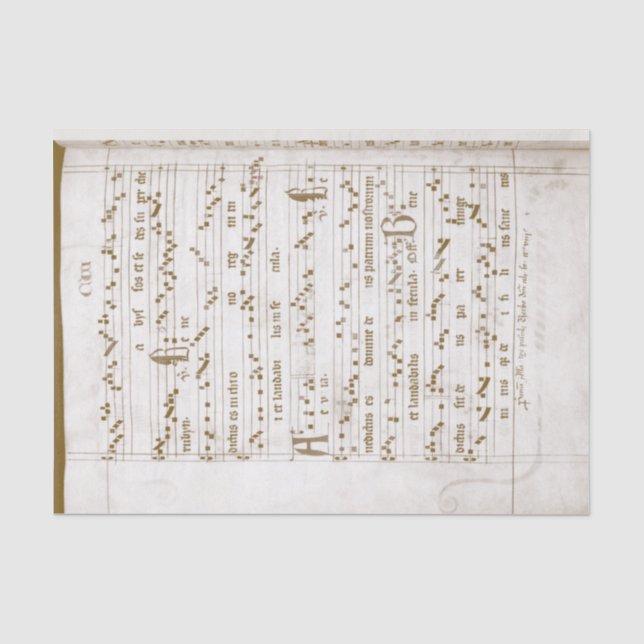 a bys sos et se ds su pr che
rubyn. V. Be ne
dictus es in thro no reg ni tu
i et laudabi lis in se cula.
Ae v ia. V. Be
nedictus es domine de us patrum nostrorum
et laudabilis in secula. Off. Be ne
dictus sit de us pa ter unige
ni tus qz de i fi li us sanc tus